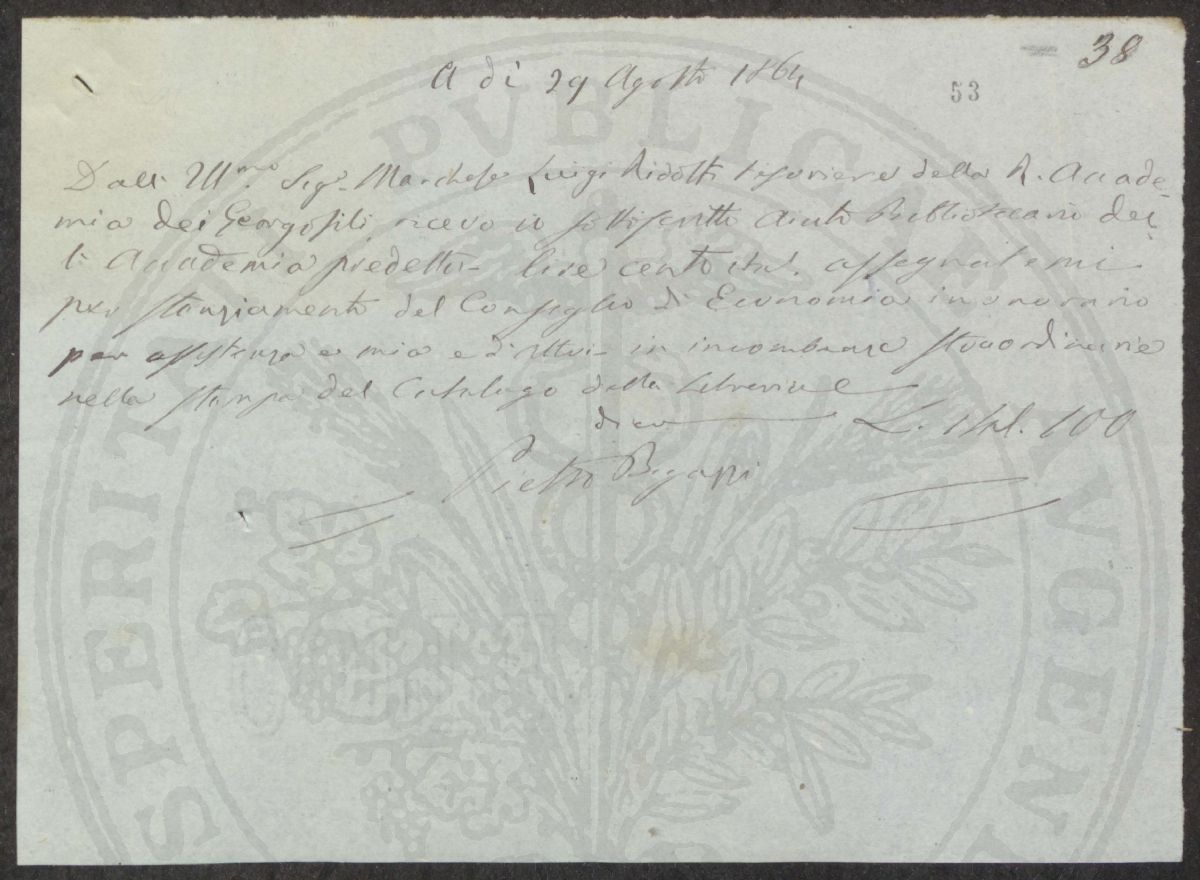 38
A dì 29 Agosto 1864
53
Dall' Ill.mo Sig.r Marchese Luigi Ridolfi Tesoriere della R. Accade-
mia dei Georgofili, ricevo io sottoscritto Aiuto Bibliotecario del-
l' Accademia predetta lire cento ital. assegnatemi
per stanziamento del Consiglio di Economia in onorario
per assistenza mia e d'altri in incombenze straordinarie
nella stampa del Catalogo della Libreria
dico L. ital. 100
Pietro Bigazzi
PROSPERITATI PUBLICAE AUGENDAE